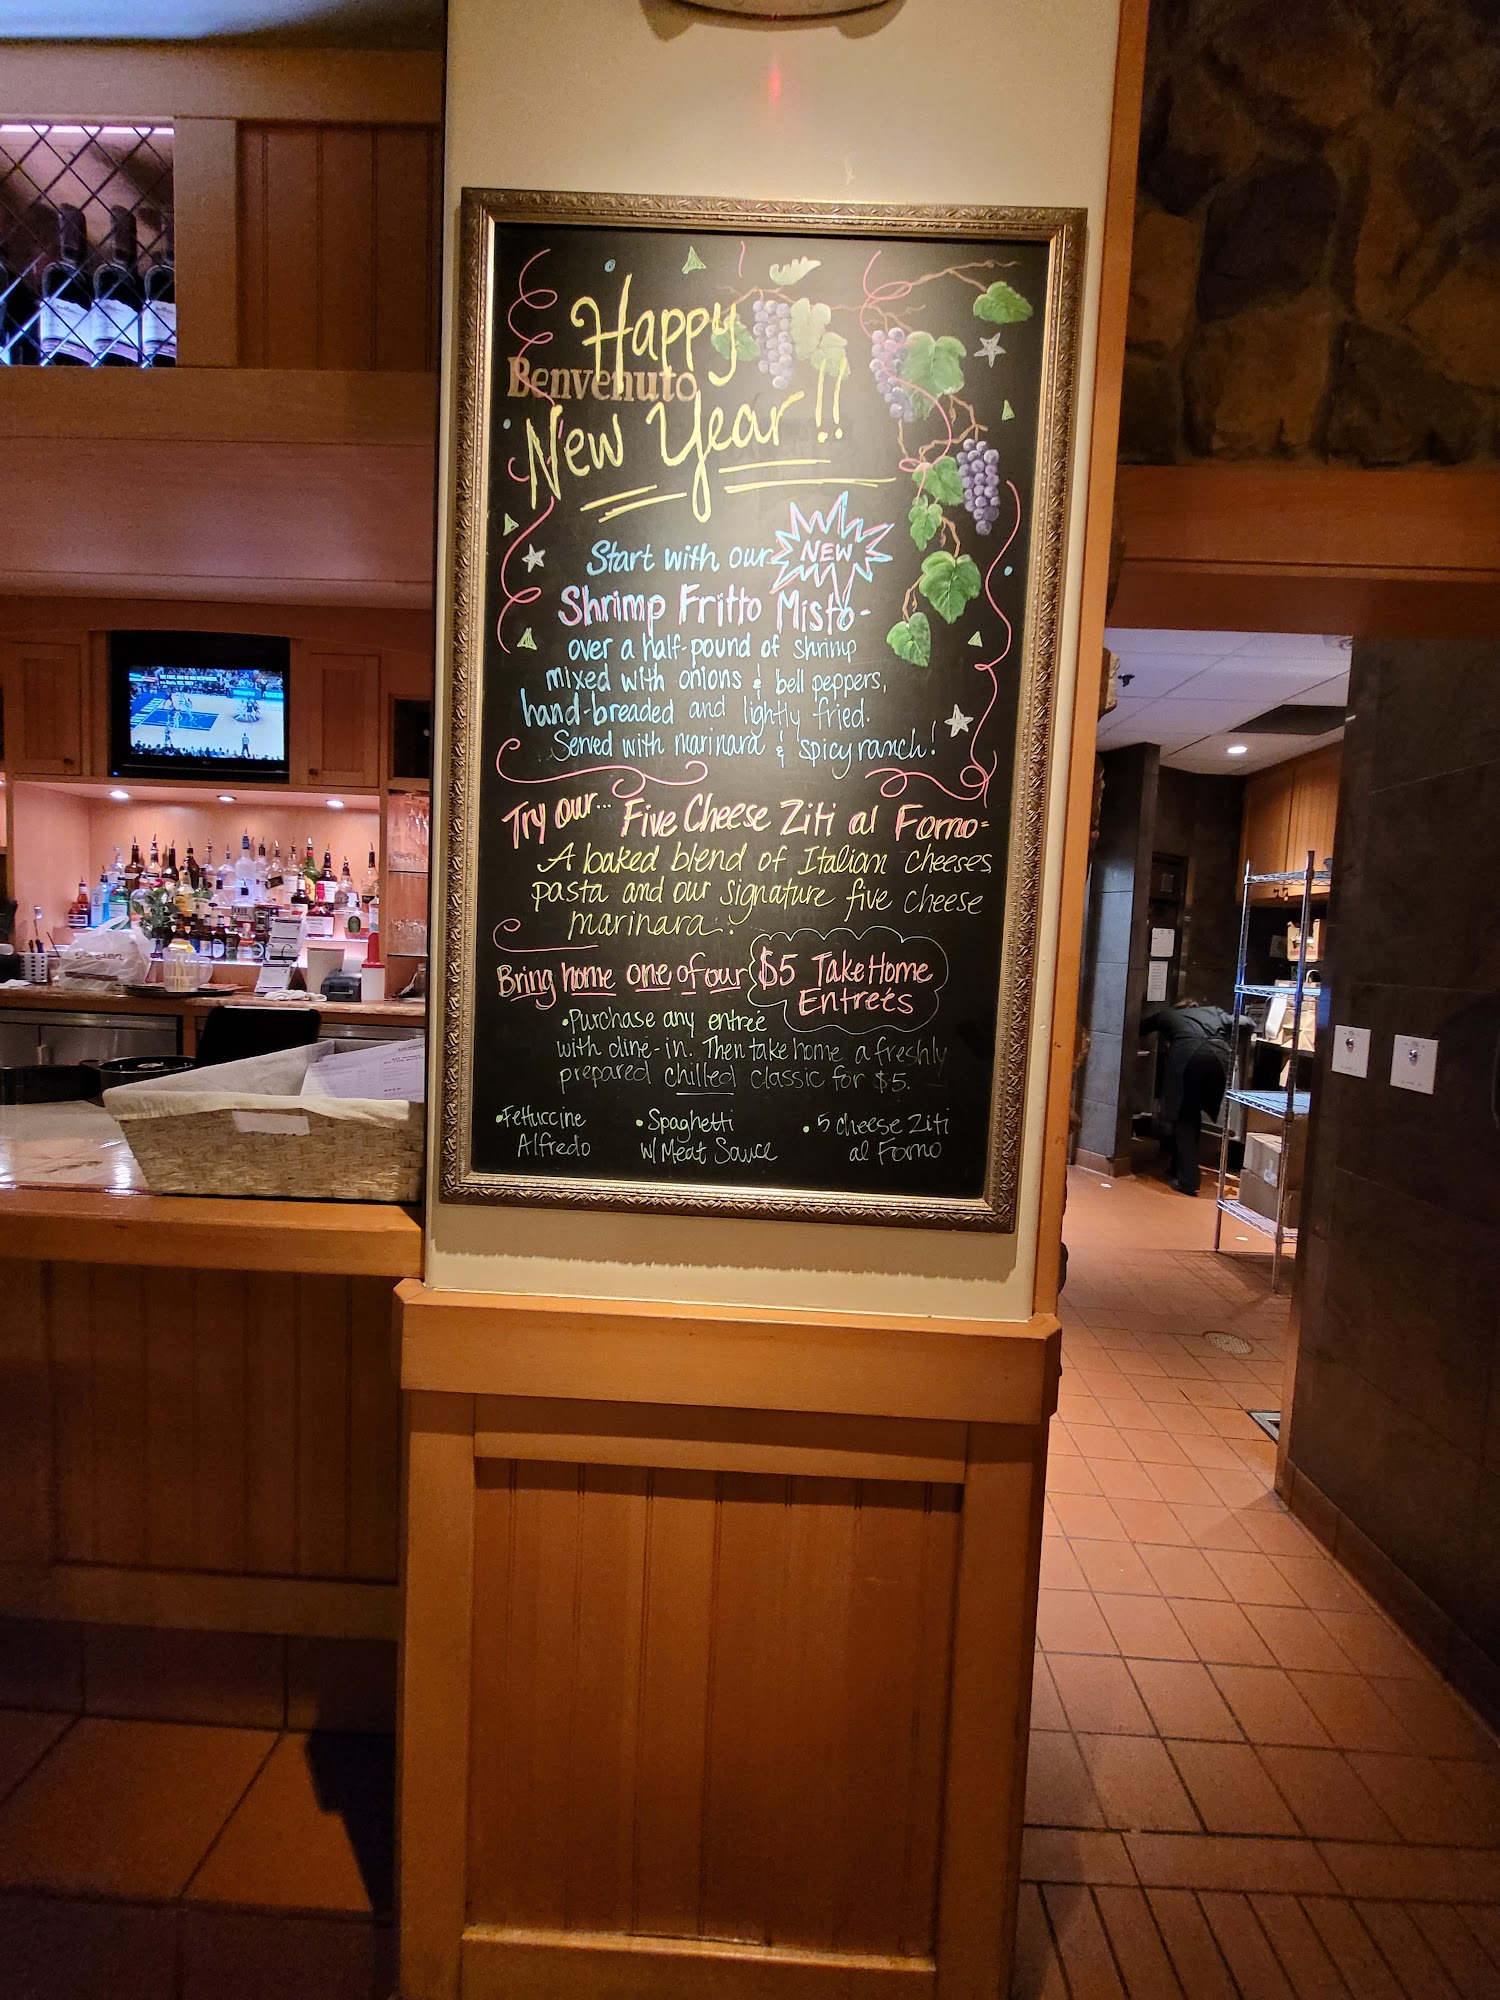 Happy
Benvenuto
New Year!!
Start with our NEW
Shrimp Fritto Misto-
over a half-pound of shrimp
mixed with onions & bell peppers,
hand-breaded and lightly fried.
Served with marinara & spicy ranch!
Try our... Five Cheese Ziti al Forno-
A baked blend of Italian cheeses,
pasta and our signature five cheese
marinara.
Bring home one of our $5 Take Home
Entreés
•Purchase any entreé
with dine-in. Then take home a freshly
prepared chilled classic for $5.
•Fettuccine
Alfredo
•Spaghetti
w/ Meat Sauce
•5 cheese Ziti
al Forno